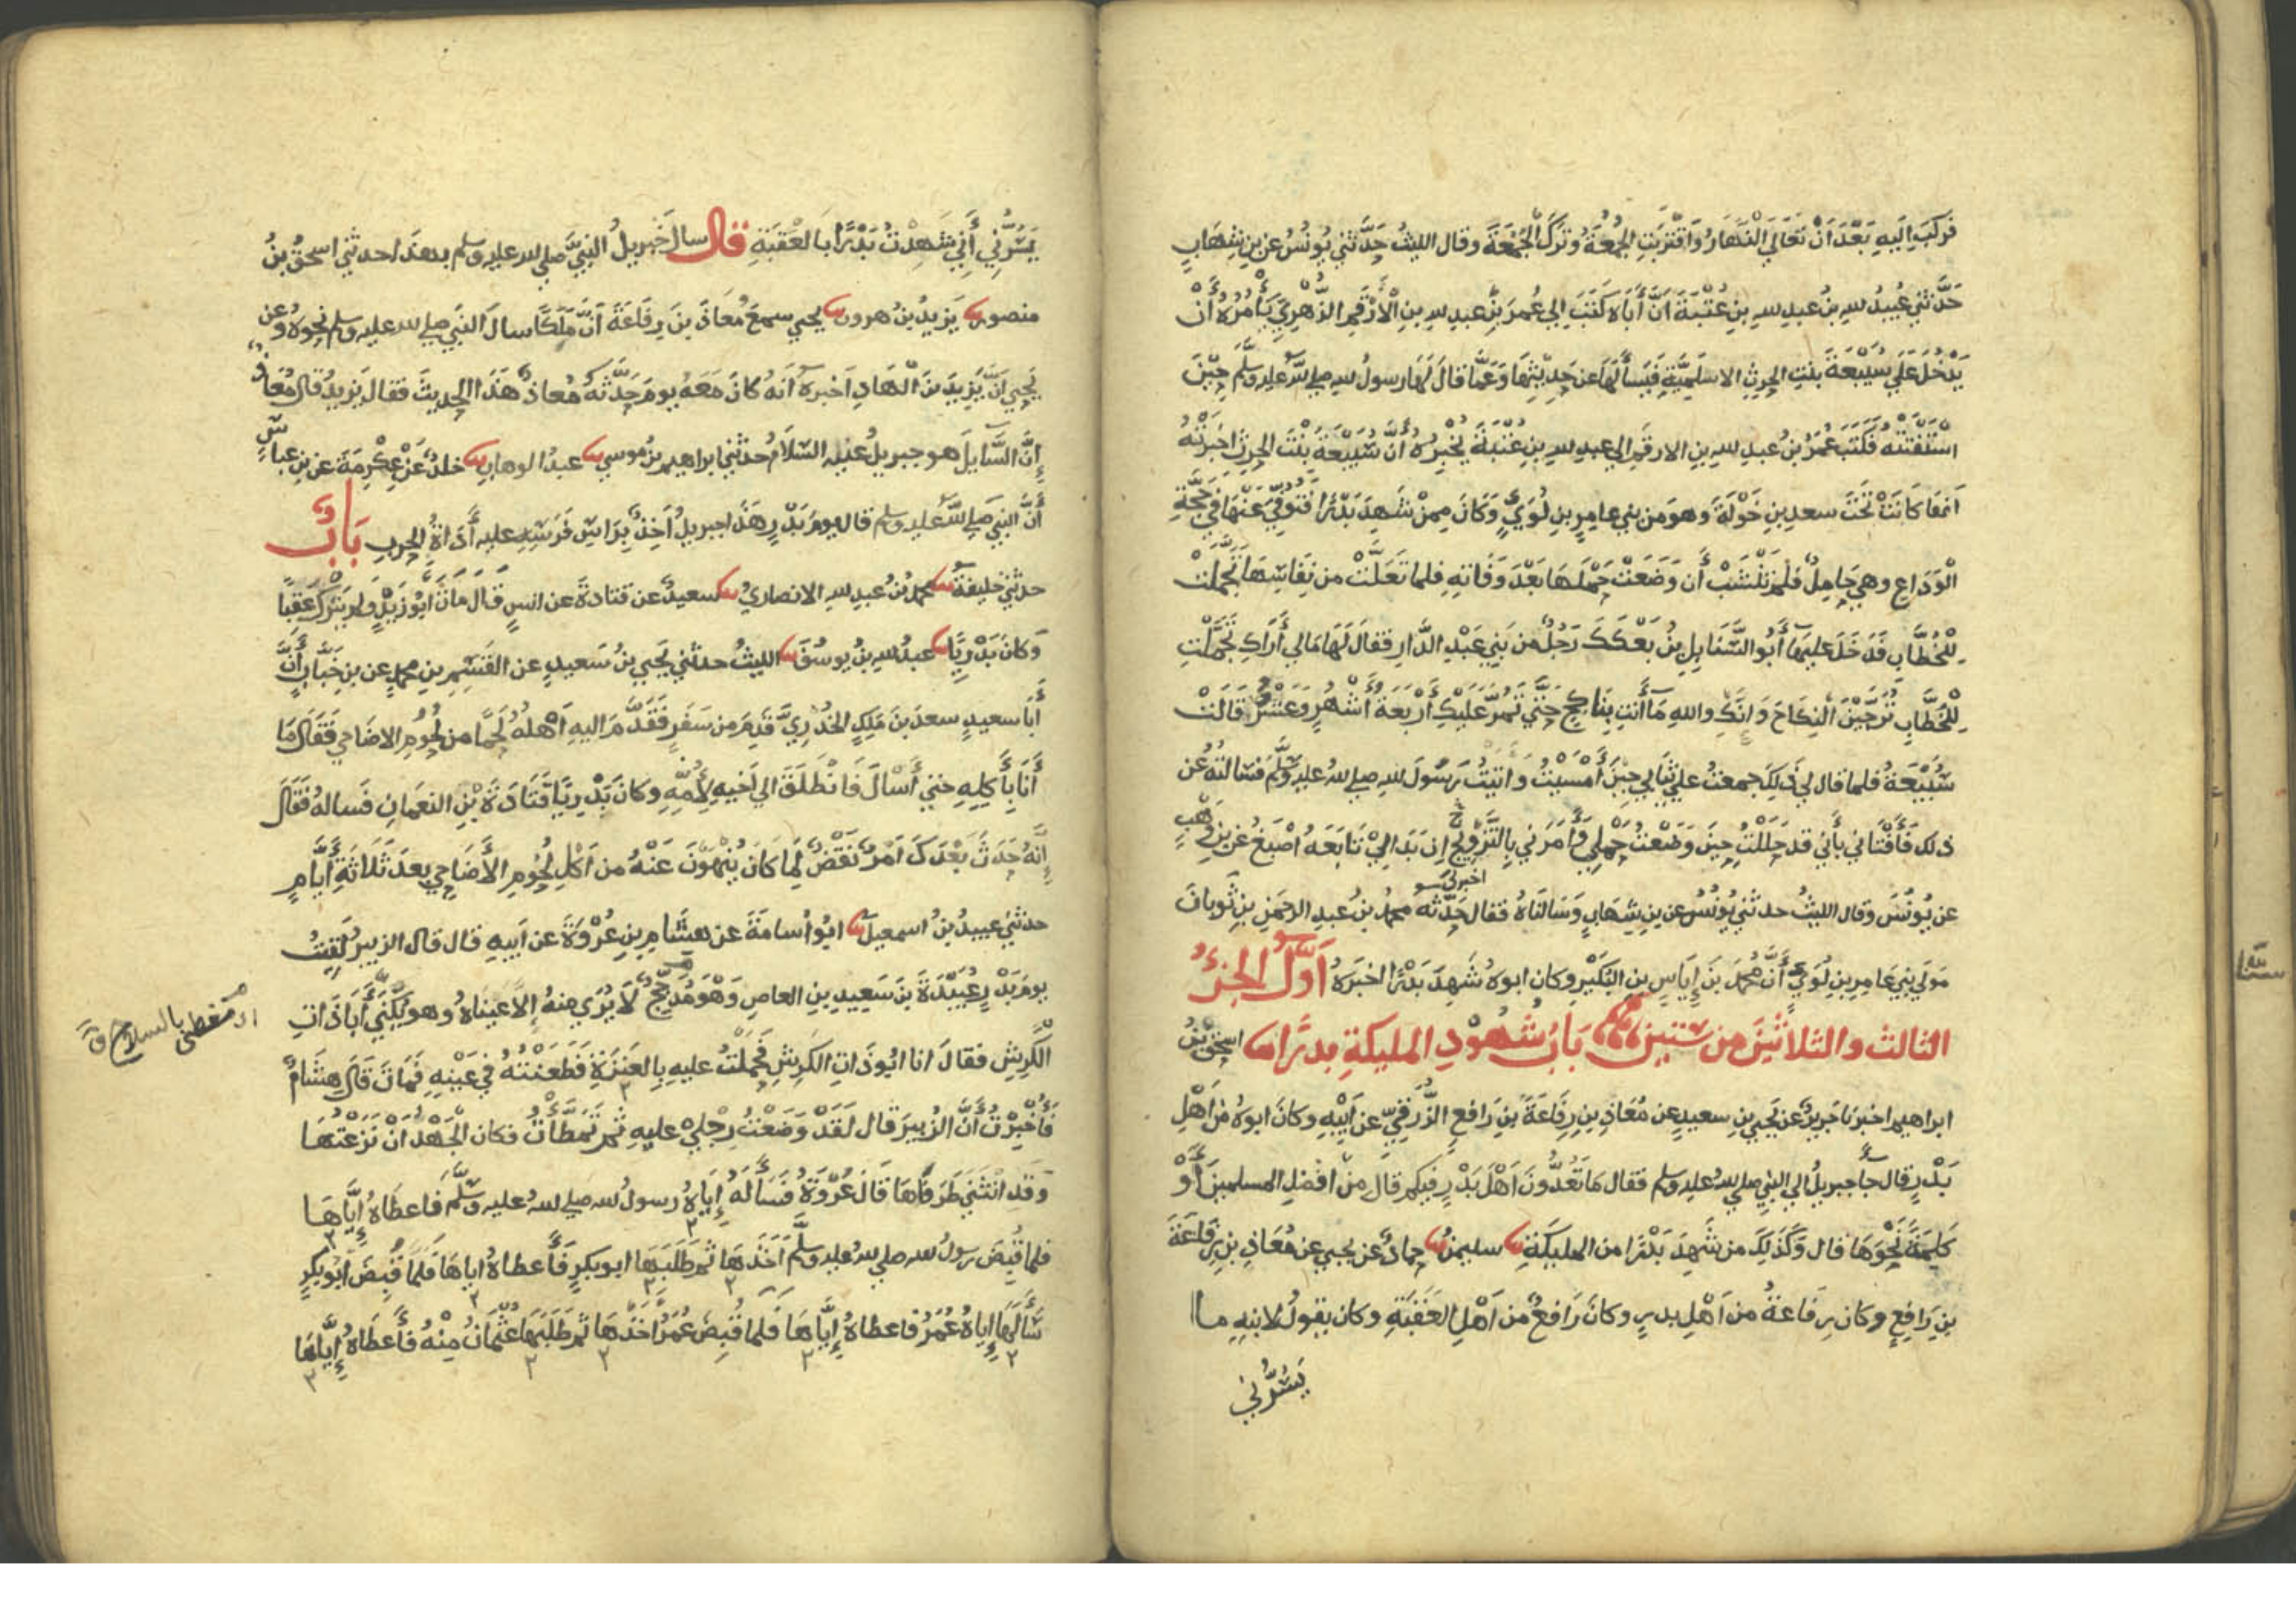 فَرَكِبَ اِلَيهِ بَعْدَ اَنْ تَعَالَي النَّهَارُ وَاقْتَرَبَتِ الجُمُعَةُ وَتَرَكَ الجُمُعَةَ وقال الليثُ حَدَّثني يُونُسُ عن بنِ شِهَابٍ
حَدَّثني عُبيدُ للهِ بنُ عبدِ للهِ بنِ عُتْبَةَ اَنَّ أَبَاهُ كَتَبَ اِلي عُمَرَ بنِ عبدِ للهِ بنِ الْأَرْقَمِ الزُّهْرِيِّ يَأْمُرُهُ أَنْ
يَدْخُلَ عَلَي سُبَيْعَةَ بنتِ الحرثِ الاسلَمِيَّةِ فَيَسأَلَهَا عن حَدِيثِهَا وَعَمَّا قالَ لَهَا رسولُ للهِ صلي للهُ عليهِ وسَلَّم حِيْنَ
اسْتَفْتَتْهُ فَكَتَبَ عُمَرُ بنُ عبدِ للهِ بنِ الارقَمِ الي عبدِ للهِ بنِ عُتْبَةَ يُخْبِرُهُ أَنَّ سُبَيْعَةَ بنْتَ الحرثِ اخبَرَتْهُ
اَنهَا كَانَتْ تَحْتَ سعدِ بنِ خَوْلَةَ وهوَ من بني عامِرِ بنِ لُوَيٍّ وَكَانَ مِمنْ شَهِدَ بَدْرًا فَتُوُفِّيَ عَنْهَا في حَجَّةِ
الْوَدَاعِ وهي حَامِلٌ فلَمْ تَنْشَبْ أَن وَضَعَتْ حَمْلَهَا بَعْدَ وَفَاتِهِ فلما تَعَلَّتْ من نِفَاسِهَا تَجَمَّلَتْ
لِلْخُطَّابِ فَدَخَلَ عليهَا أَبُو السَّنَابِلِ بنُ بَعْكَكَ رَجُلٌ من بَنِي عَبْدِ الدَّارِ فقالَ لَهَا مَالي أَرَاكِ تَجَمَّلْتِ
لِلْخُطَّابِ تُرَجِّيْنَ النِكاحَ وَانَّكِ واللهِ مَا أَنتِ بِنَاكِحٍ حَتَّي تَمُرَّ عَلَيْكِ أَرْبَعَةُ أَشْهُرٍ وَعَشْرٌ قالَتْ
سُبَيْعَةُ فلما قال لي ذَلِكَ جمعتُ علي ثيَابي حِيْنَ أَمْسَيْتُ وَاتَيْتُ رَسُولَ للهِ صلي للهُ عليهِ وسَلَّم فسَالتُهُ عن
ذلك فَأَفْتَاني بِأَني قد حَلَلْتُ حِينَ وَضَعْتُ حَمْلِي وَأَمَرَني بِالتَّزْويجِ اِن بَدَا لِيْ تَابَعَهُ اَصْبَغُ عن بنِ وَهْبٍ
عن يُونُسَ وقال الليثُ حدثني يُونُسُ عن بنِ شِهَابٍ وَسَالنَاهُ فقال حَدَّثَه محمدُ بنُ عبدِ الرحمَنِ بنِ ثَوبَانَ
اخبرني
مَولَي بَنِي عَامِرِ بنِ لُوَيٍّ أَنَّ مُحمدَ بنَ إِيَاسِ بنِ البُكَيْرِ وكان ابوهُ شَهِدَ بَدْرًا اخبَرَهُ اَوَّلُ الجزءِ
الثالث والثلاثِيْنَ من ستين بَابُ شُهُوْدِ المليكةِ بدرًا اسحقُ بنُ
ابراهيم اخبرنا جَريرٌ عن يحيي بنِ سعيدٍ عن مُعَاذِ بنِ رِفَاعَةَ بنِ رَافِعٍ الزُّرَقيِّ عن اَبِيْهِ وكَانَ ابوهُ من اَهْلِ
بَدْرٍ قال جاَ جبريلُ الي النبي صلي للهُ عليهِ وسلم فقال مَا تَعُدُّونَ اَهْلَ بَدْرٍ فيكم قال مِنْ افضَلِ المسلمينَ أَوْ
كَلِمَةً نَحْوَهَا قال وَكَذَلِكَ من شَهِدَ بَدْرًا من المليكةِ سليمنُ حمادٌ عن يحيي عن مُعَاذِ بنِ رِفَاعَةَ
بنِ رَافِعٍ وكان رِفَاعَةُ من اَهْلِ بدرٍ وكانَ رَافعٌ من اَهْلِ العَقَبَةِ وكان يقولُ لابنِهِ ما
يَسُرُّني
يَسُرُّنِي أَنِي شَهِدْتُ بَدْرًا بالعَقَبَةِ قال سال جبريلُ النبيَّ صلي لله عليهِ وسلم بهذا حدثني اسحقُ بنُ
منصورٍ يَزِيدُ بنُ هرون يحيي سمعَ مُعَاذَ بنَ رِفَاعَةَ أَنَّ مَلَكًا سالَ النبي صلي لله عليه وسلم نحوهُ وعن
يَحيي اَنَّ يَزِيدَ بنَ الْهَادِ اَخبرهُ اَنهُ كانَ مَعَهُ يومَ حَدَّثَهُ مُعاذٌ هَذَا الحديثَ فقالَ يَزِيدُ قالَ مُعَاذٌ
اِنَّ السَّايلَ هو جبريلُ عليه السَّلَامُ حدثني ابراهيم بنُ موسي عبدُ الوهابِ خلدٌ عن عِكْرِمَةَ عن بنِ عباسٍ
أَنَّ النبي صلي للهُ عليهِ وسلم قال يومَ بَدْرٍ هَذَا جبريلُ اَخِذٌ بِرَاسِ فَرَسِهِ عليهِ أَدَاةُ الحربِ بَابٌ
حدثني خليفةُ محمدُ بنُ عبدِ للهِ الانصاريُ سعيدٌ عن قتادةَ عن انسٍ قَال مَاتَ اَبُو زَيْدٍ وَلم يَتْرُكْ عَقِبًا
وَكانَ بَدْرِيًّا عبدُ للهِ بنُ يوسُفَ الليثُ حدثني يحيي بنُ سَعيدٍ عن القَسِمِ بنِ محمدٍ عن بنِ خَبَّابٍ أَنَّ
أَبَا سعيدٍ سعدَ بنَ مَلِكٍ الخدْرِيَّ قَدِمَ من سَفَرٍ فَقَدَّمَ اليهِ اَهْلُهُ لَحْمًا من لُحُومِ الاضاحي فَقَالَ مَا
أَنَا بِآَكِلِهِ حتي أَسْالَ فَانْطَلَقَ الي اَخيهِ لِأُمِّهِ وكانَ بَدْرِيًّا قَتَادَةَ بْنِ النعمَانِ فَسالهُ فَقَالَ
إِنَّهُ حَدَثَ بَعْدَكَ اَمْرٌ نَقْضٌ لِمَا كانَ يُنْهَوْنَ عَنْهُ من اَكلِ لُحُومِ الأَضَاحي بعدَ ثَلَاثَةِ أَيَّامٍ
حدثني عبيدُ بنُ اسمعيلَ ابُو اُسامَةَ عن هشَامِ بنِ عُرْوَةَ عن اَبيهِ قال قال الزبيرُ لَقِيْتُ
يومَ بَدْرٍ عُبَيْدَةَ بنَ سَعِيدِ بنِ العاصِ وَهْوَ مُدَجَّجٌ لَا يُرَي مِنهُ اِلَّا عينَاهُ وهو يُكَنَّي أَبَا ذَاتِ
اي مغطى بالسلاح
الْكَرِشِ فقالَ انا ابُو ذَاتِ الكَرِشِ فَحَمَلْتُ عليهِ بِالعَنَزَةِ فَطَعَنْتُهُ في عَيْنِهِ فَمَاتَ قَالَ هِشَامٌ
فَأُخْبِرْتُ أَنَّ الزبيرَ قال لَقَدْ وَضَعْتُ رِجْلِيْ عليهِ ثم تَمَطَّأْتُ فكان الجَهْدُ اَنْ نَزَعْتُهَا
وَقَدِ انْثَنَي طَرَفَاهَا قَالَ عُرْوَةُ فَسَأَلَهُ إِيَاهُ رسولُ لله صلي للهُ عليهِ وسَلَّم فَاعطَاهُ إِيَّاهَا
فلما قُبِضَ رسولُ لله صلي للهُ عليهِ وسلَّم أَخَذَهَا ثم طَلَبَهَا ابو بكرٍ فَأَعطاهُ اياهَا فَلَمَّا قُبِضَ اَبُو بَكرٍ
سَأَلَهَا إِيَاهُ عُمَرُ فاعطاهُ إِيَّاهَا فَلما قُبِضَ عُمَرُ اَخَذَهَا ثم طَلَبَهَا عُثْمَانُ مِنْهُ فَأَعطَاهُ إِيَّاهَا